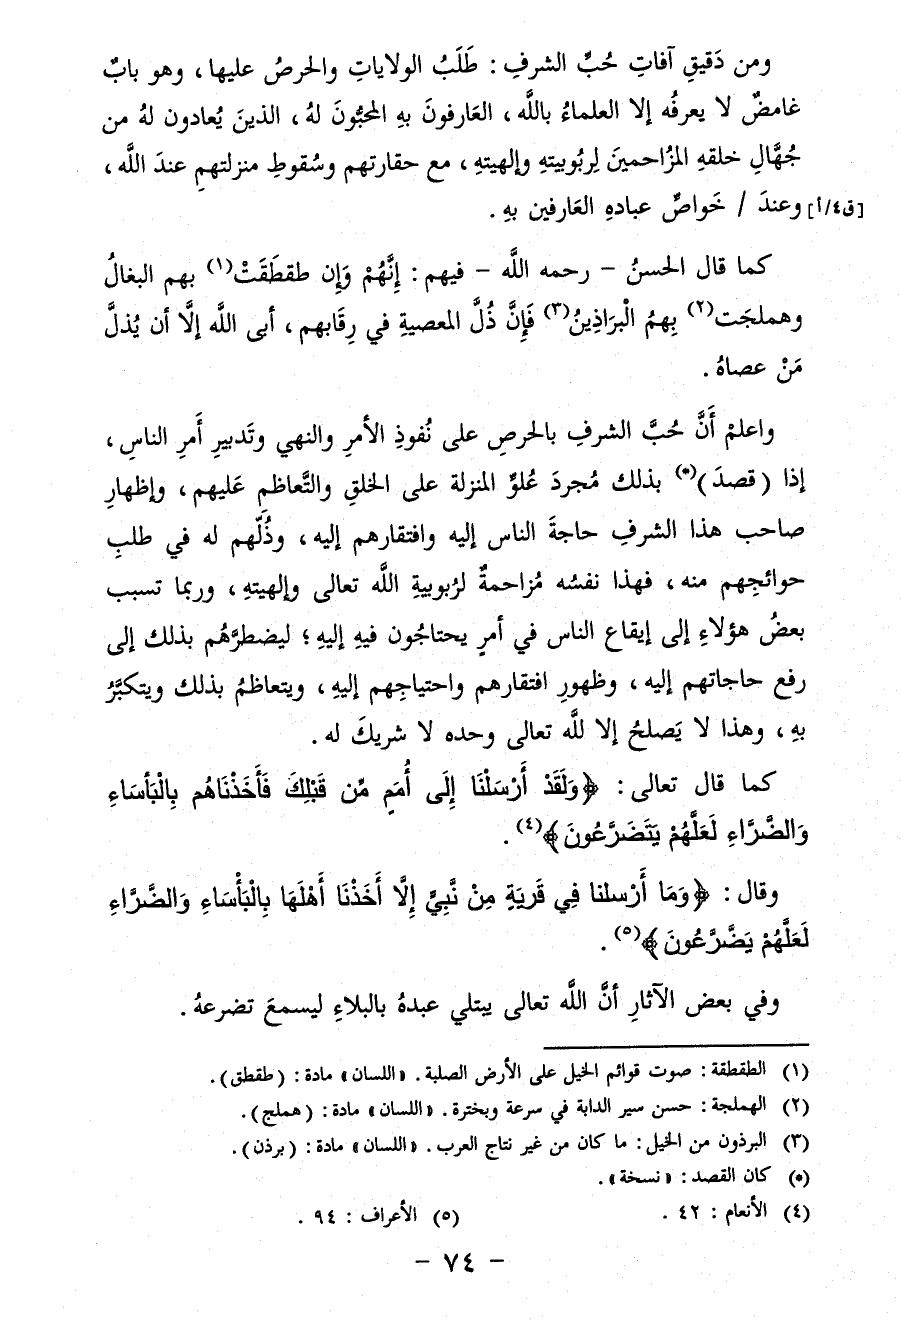 ومن دَقيقِ آفاتِ حُبِّ الشرفِ : طَلَبُ الولاياتِ والحرصُ عليها ، وهو بابٌ
غامضٌ لا يعرفُه إلا العلماءُ باللَّه ، العَارفونَ بهِ المحبُّونَ لهُ ، الذينَ يُعادون لهُ من
جُهَّالِ خلقهِ المزُاحمينَ لِربُوبيتهِ وإلهيتهِ ، مع حقارتهم وسُقوطِ منزلتهمِ عندَ اللَّه ،
[ق٤/أ] وعندَ / خَواصِّ عبادهِ العَارفين بهِ .
كما قال الحسنُ – رحمه اللَّه – فيهم : إِنَّهُمْ وَإِن طقطَقَتْ(١) بهم البغالُ
وهملجَت(٢) بِهمُ الْبرَاذِينُ(٣) فَإِنَّ ذُلَّ المعصيةِ في رِقَابهم ، أبى اللَّه إلَّا أن يُذلَّ
مَنْ عصاهُ .
واعلمْ أَنَّ حُبَّ الشرفِ بالحرصِ على نُفوذِ الأمرِ والنهي وتَدبيرِ أَمرِ الناسِ ،
إذا ( قصدَ )(*) بذلك مُجردَ عُلوِّ المنزلة على الخلقِ والتَّعاظمِ عَليهم ، وإظهارِ
صاحب هذا الشرفِ حاجةَ الناس إليه وافتقارهم إليه ، وذُلّهم له في طلبِ
حوائجِهم منه ، فهذا نفسُه مُزاحمةٌ لرُبوبيةِ اللَّه تعالى وإلهيتهِ ، وربما تسبب
بعضُ هؤلاءِ إلى إيقاع الناس في أمرٍ يحتاجُون فيهِ إليهِ ؛ ليضطرَّهُم بذلك إلى
رفع حاجاتهم إليه ، وظهورِ افتقارهم واحتياجِهم إليهِ ، ويتعاظمُ بذلك ويتكبَّرُ
بهِ ، وهذا لا يَصلحُ إلا للَّه تعالى وحده لا شريكَ له .
كما قال تعالى : ﴿وَلَقَدْ أَرْسَلْنَا إِلَى أُمَمٍ مِّن قَبْلِكَ فَأَخَذْنَاهُم بِالْبَأسَاءِ
وَالضَّرَّاءِ لَعَلَّهُمْ يَتَضَرَّعُونَ﴾(٤) .
وقال : ﴿وَمَا أَرْسلنا فِي قَرِيَةٍ مِنْ نَّبِيٍّ إِلَّا أَخَذْنَا أَهْلَهَا بِالْبَأْسَاءِ وَالضَّرَّاءِ
لَعَلَّهُمْ يَضَّرَّعُونَ﴾(٥) .
وفي بعض الآثارِ أنَّ اللَّه تعالى يبتلي عبدهُ بالبلاءِ ليسمعَ تضرعهُ .
(١) الطقطقة : صوت قوائم الخيل على الأرض الصلبة . «اللسان» مادة : (طقطق) .
(٢) الهملجة : حسن سير الدابة في سرعة وبخترة . «اللسان» مادة : (هملج) .
(٣) البرذون من الخيل : ما كان من غير نتاج العرب . «اللسان» مادة : (برذن) .
(*) كان القصد : «نسخة» .
(٤) الأنعام : ٤٢ . (٥) الأعراف : ٩٤ .
– ٧٤ –